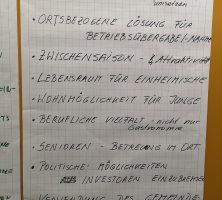 umsetzen
• ORTSBEZOGENE LÖSUNG FÜR
BETRIEBSÜBERGABE/-NAHM
• ZWISCHENSAISON - Attraktivität
• LEBENSRAUM FÜR EINHEIMISCHE
• WOHNMÖGLICHKEIT FÜR JUNGE
• BERUFLICHE VIELFALT - nicht nur
Gastronomie
• SENIOREN - BETREUUNG IM ORT
• POLITISCHE MÖGLICHKEITEN
INVESTOREN EINZUBREMSEN
VERWENDUNG DES GEMEINDE